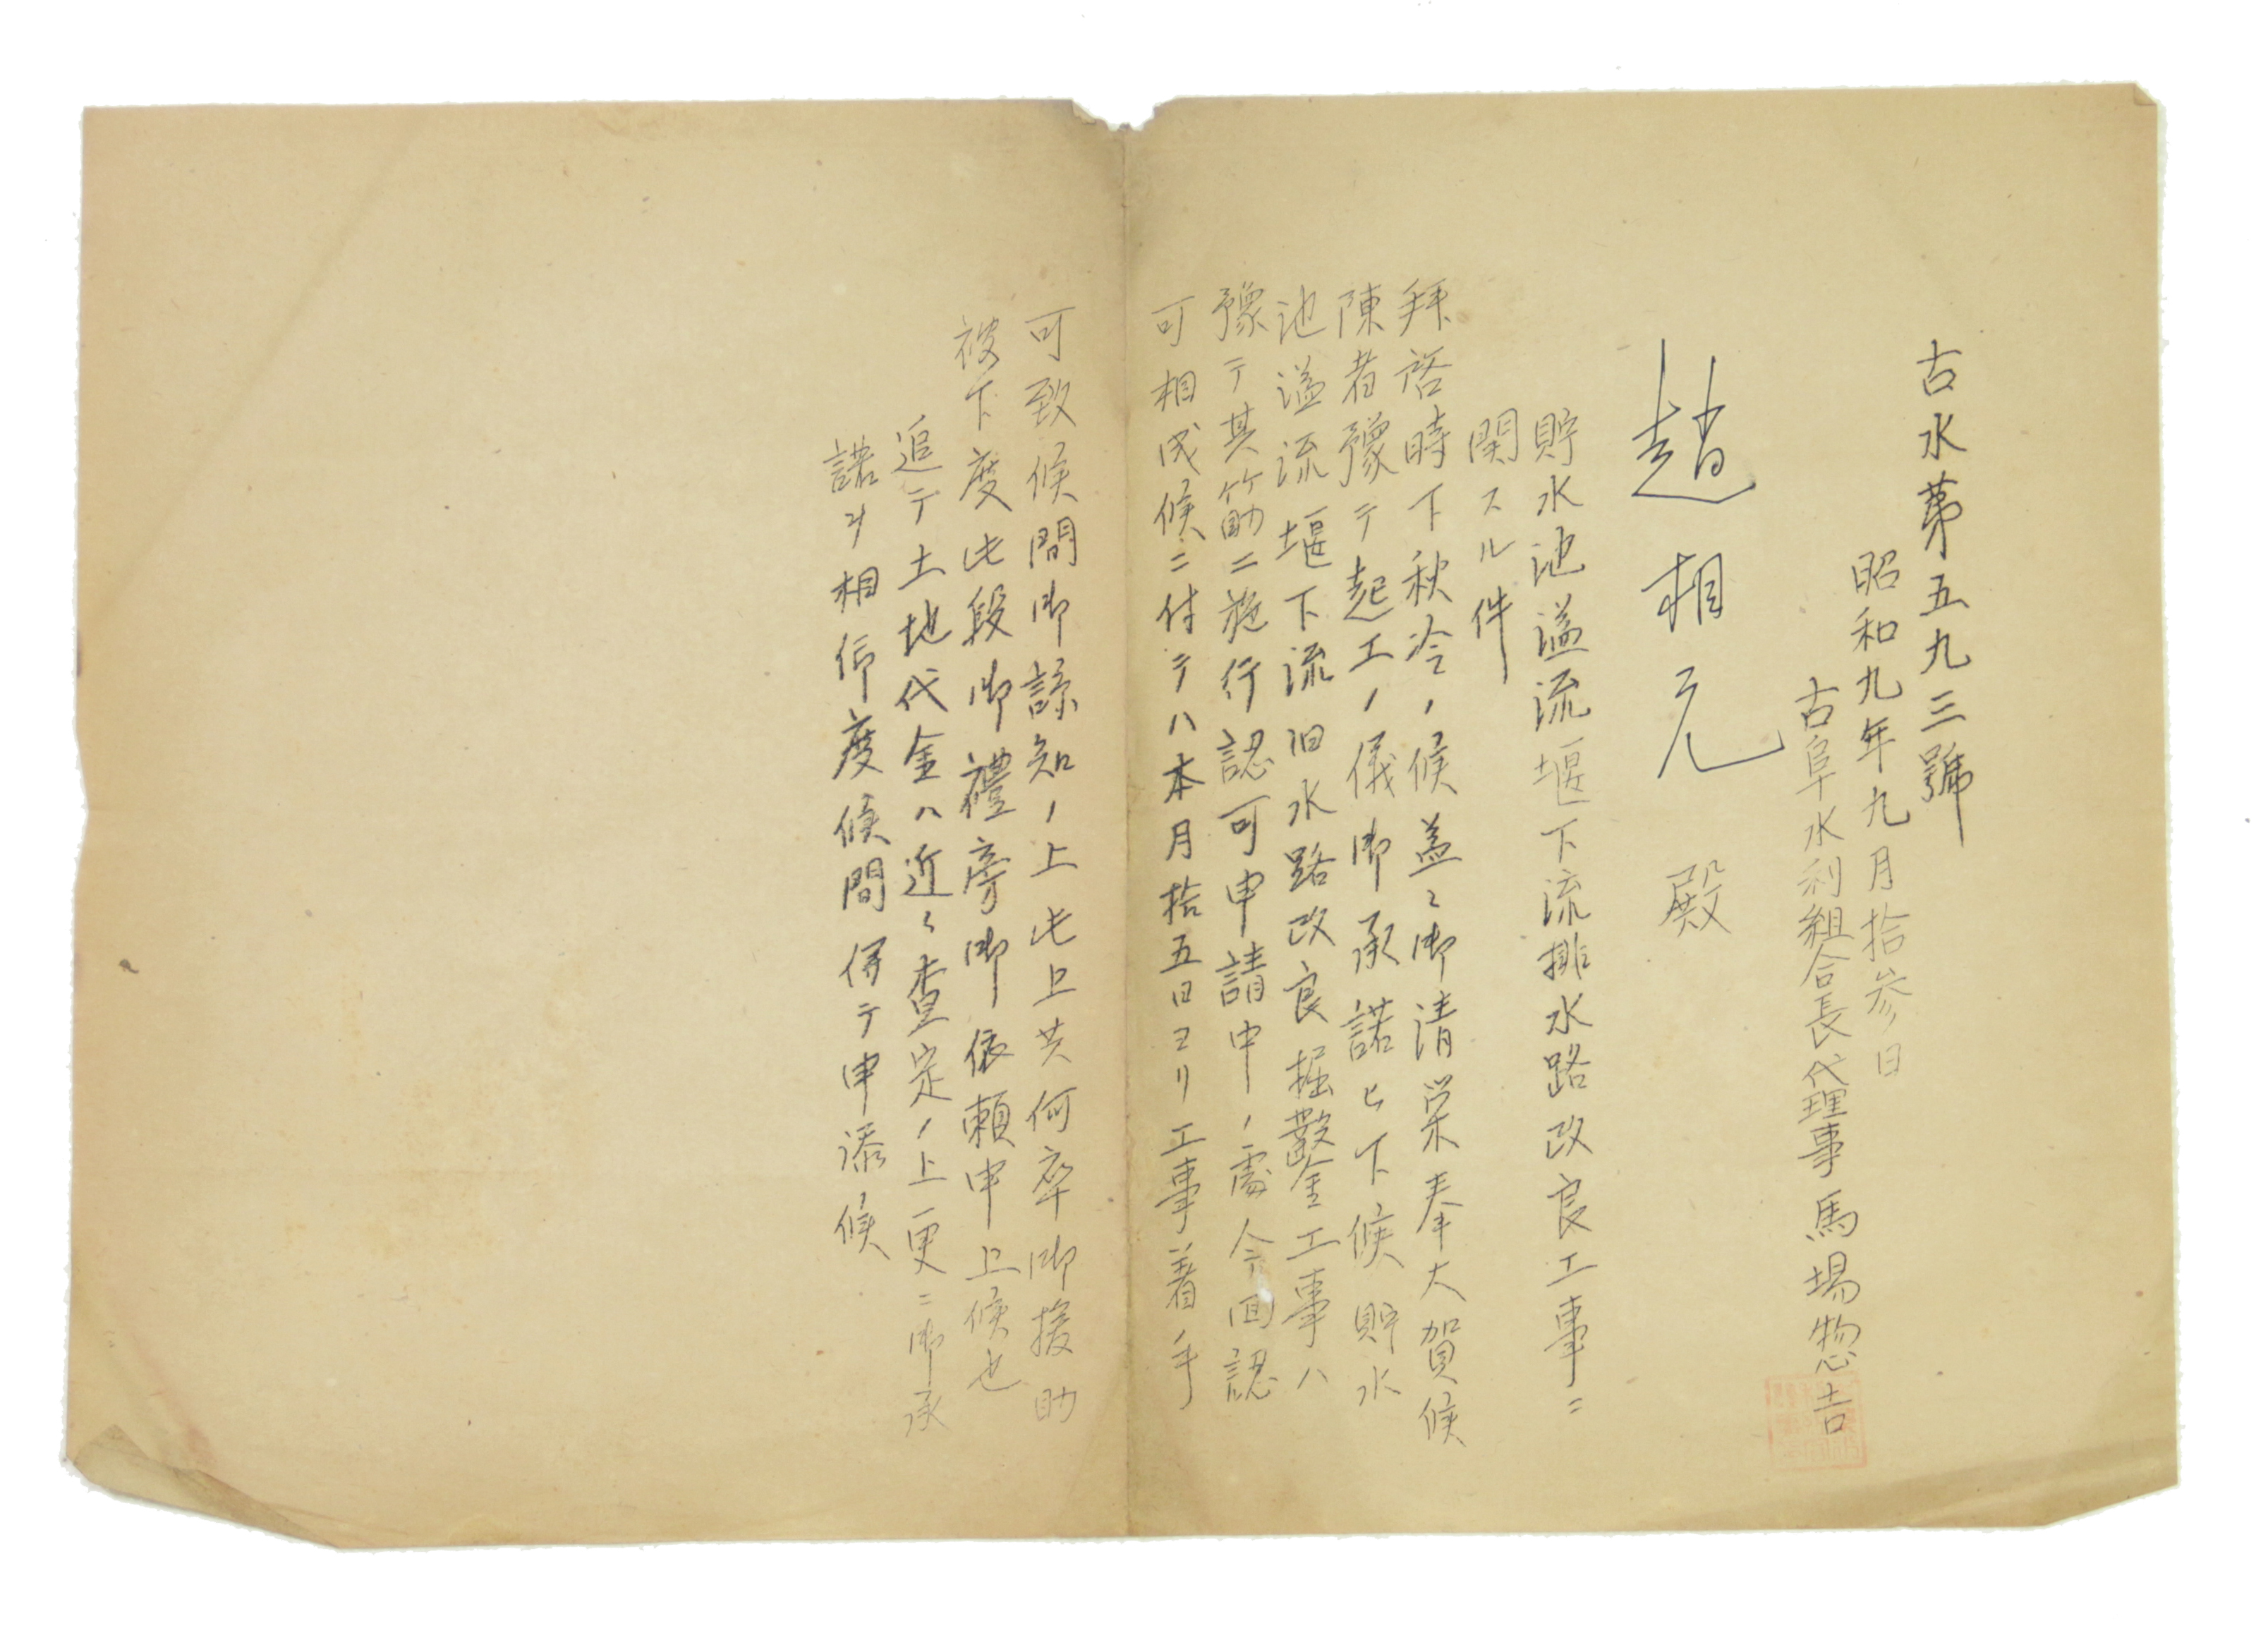 古水第五九三號
昭和九年九月拾参日
古阜水利組合長代理事馬場惣吉
趙相元 殿
貯水池溢流堰下流排水路改良工事ニ
関スル件
拝啓時下秋冷ノ候益々御清栄奉大賀候
陳者豫テ起工ノ儀御承諾ヒ下候貯水
池溢流堰下流旧水路改良掘鑿工事ハ
豫テ其筋ニ施行認可申請中ノ處今回認
可相成候ニ付テハ本月拾五日ヨリ工事着手
可致候間御諒知ノ上此上共何卒御援助
被下度此段御禮旁御依頼申上候也
追テ土地代金ハ近々査定ノ上更ニ御承
諾ヲ相仰度候間併テ申添候